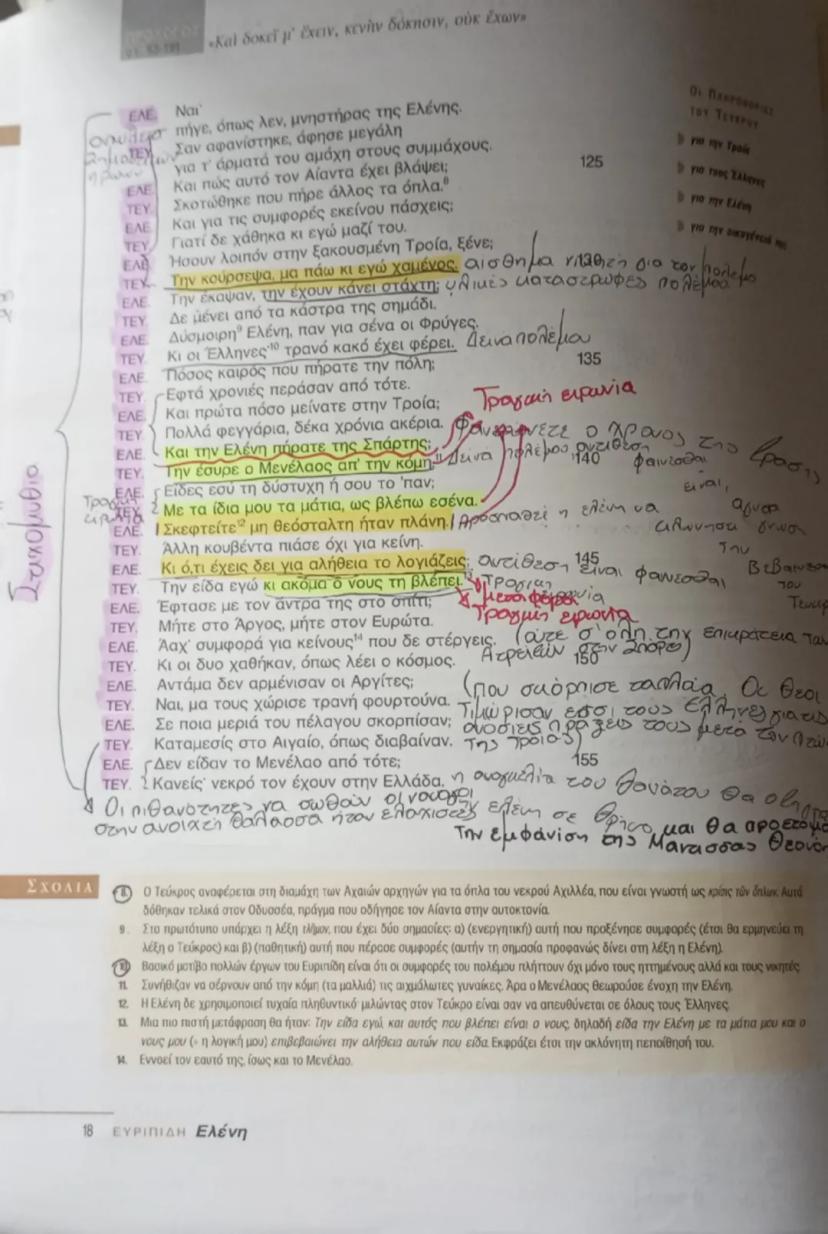 «Καὶ δοκεῖ μ' ἔχειν, κενὴν δόκησιν, οὐκ ἔχων»
ΟΙ ΠΛΗΡΟΦΟΡΙΕΣ
ΤΟΥ ΤΕΥΚΡΟΥ
για την Τροία
για τους Έλληνες
για την Ελένη
για την οικογένειά της
ΕΛΕ. Ναι·
πήγε, όπως λεν, μνηστήρας της Ελένης.
ΤΕΥ. Σαν αφανίστηκε, άφησε μεγάλη
για τ' άρματά του αμάχη στους συμμάχους. 125
ΕΛΕ. Και πώς αυτό τον Αίαντα έχει βλάψει;
ΤΕΥ. Σκοτώθηκε που πήρε άλλος τα όπλα.⁸
ΕΛΕ. Και για τις συμφορές εκείνου πάσχεις;
ΤΕΥ. Γιατί δε χάθηκα κι εγώ μαζί του.
ΕΛΕ. Ήσουν λοιπόν στην ξακουσμένη Τροία, ξένε;
ΤΕΥ. Την κούρσεψα, μα πάω κι εγώ χαμένος. αισθημα για τον πολεμο
ΕΛΕ. Την έκαψαν, την έχουν κάνει στάχτη; υλικές καταστροφές πολέμου
ΤΕΥ. Δε μένει από τα κάστρα της σημάδι.
ΕΛΕ. Δύσμοιρη⁹ Ελένη, παν για σένα οι Φρύγες.
ΤΕΥ. Κι οι Έλληνες·¹⁰ τρανό κακό έχει φέρει. Δεινα πολέμου
ΕΛΕ. Πόσος καιρός που πήρατε την πόλη; 135
ΤΕΥ. Εφτά χρονιές περάσαν από τότε.
ΕΛΕ. Και πρώτα πόσο μείνατε στην Τροία; Τραγική ειρωνία
ΤΕΥ. Πολλά φεγγάρια, δέκα χρόνια ακέρια. ο χρονος της δρασης
ΕΛΕ. Και την Ελένη πήρατε της Σπάρτης;
ΤΕΥ. Την έσυρε ο Μενέλαος απ' την κόμη.¹¹ Δεινα πολέμου αντιθεση 140 φαινεσθαι
ΕΛΕ. Είδες εσύ τη δύστυχη ή σου το 'παν; ειναι
ΤΕΥ. Με τα ίδια μου τα μάτια, ως βλέπω εσένα.
ΕΛΕ. Σκεφτείτε¹² μη θεόσταλτη ήταν πλάνη. η ελένη να
ΤΕΥ. Άλλη κουβέντα πιάσε όχι για κείνη. την
ΕΛΕ. Κι ό,τι έχεις δει για αλήθεια το λογιάζεις; αντίθεση 145 είναι φαινεσθαι
ΤΕΥ. Την είδα εγώ κι ακόμα ο νους τη βλέπει.¹³ μεταφορα
ΕΛΕ. Έφτασε με τον άντρα της στο σπίτι; Τραγική ειρωνία
ΤΕΥ. Μήτε στο Άργος, μήτε στον Ευρώτα.
ΕΛΕ. Άαχ· συμφορά για κείνους¹⁴ που δε στέργεις. (ούτε σ' ολη την επικράτεια των
ΤΕΥ. Κι οι δυο χαθήκαν, όπως λέει ο κόσμος. Ατρειδών 150
ΕΛΕ. Αντάμα δεν αρμένισαν οι Αργίτες;
ΤΕΥ. Ναι, μα τους χώρισε τρανή φουρτούνα. (που σκόρπισε τα πλοία. Οι θεοι
ΕΛΕ. Σε ποια μεριά του πέλαγου σκορπίσαν; Τιμώρισαν ετσι τους Ελληνες για τις
ΤΕΥ. Καταμεσίς στο Αιγαίο, όπως διαβαίναν. ανοσιες πράξεις τους μετα την
της Τροίας)
ΕΛΕ. Δεν είδαν το Μενέλαο από τότε; 155
ΤΕΥ. Κανείς· νεκρό τον έχουν στην Ελλάδα. η αναγγελία του θανάτου θα
Οι πιθανότητες να σωθουν οι ναυαγοι
στην ανοιχτη θαλασσα ήταν ελαχιστες ελενη σε θρηνο και θα
την εμφάνιση της
Στιχομυθία
ΣΧΟΛΙΑ
8. Ο Τεύκρος αναφέρεται στη διαμάχη των Αχαιών αρχηγών για τα όπλα του νεκρού Αχιλλέα, που είναι γνωστή ως κρίσις των όπλων. Αυτά
δόθηκαν τελικά στον Οδυσσέα, πράγμα που οδήγησε τον Αίαντα στην αυτοκτονία.
9. Στο πρωτότυπο υπάρχει η λέξη τλήμων, που έχει δύο σημασίες: α) (ενεργητική) αυτή που προξένησε συμφορές (έτσι θα ερμηνεύει τη
λέξη ο Τεύκρος) και β) (παθητική) αυτή που πέρασε συμφορές (αυτήν τη σημασία προφανώς δίνει στη λέξη η Ελένη).
10. Βασικό μοτίβο πολλών έργων του Ευριπίδη είναι ότι οι συμφορές του πολέμου πλήττουν όχι μόνο τους ηττημένους αλλά και τους νικητές.
11. Συνήθιζαν να σέρνουν από την κόμη (τα μαλλιά) τις αιχμάλωτες γυναίκες. Άρα ο Μενέλαος θεωρούσε ένοχη την Ελένη.
12. Η Ελένη δε χρησιμοποιεί τυχαία πληθυντικό· μιλώντας στον Τεύκρο είναι σαν να απευθύνεται σε όλους τους Έλληνες.
13. Μια πιο πιστή μετάφραση θα ήταν: Την είδα εγώ, και αυτός που βλέπει είναι ο νους, δηλαδή είδα την Ελένη με τα μάτια μου και ο
νους μου (= η λογική μου) επιβεβαιώνει την αλήθεια αυτών που είδα. Εκφράζει έτσι την ακλόνητη πεποίθησή του.
14. Εννοεί τον εαυτό της, ίσως και το Μενέλαο.
18 ΕΥΡΙΠΙΔΗ Ελένη